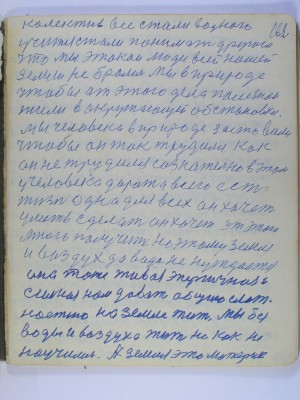 колектив все стали водного
учится стали понимат другого
что мы этакои люди всей нашей
земли не брали мы в природе
чтобы ат этого дела полезнея
жили в окружающей обстановке.
мы человека в природе заставили
чтобы он так трудился как
он не трудился сознателно в этом
у человека дарога всего ест
тизн одна для всех он хочет
умет сделат он хочет эт этого
много получит но этому земля
и воздух да вода не нуждается
она тоже живая энергичная
силная нам дават общую
на земле тит. мы без
воды и воздуха жит не как не
научилис. А земля это материя